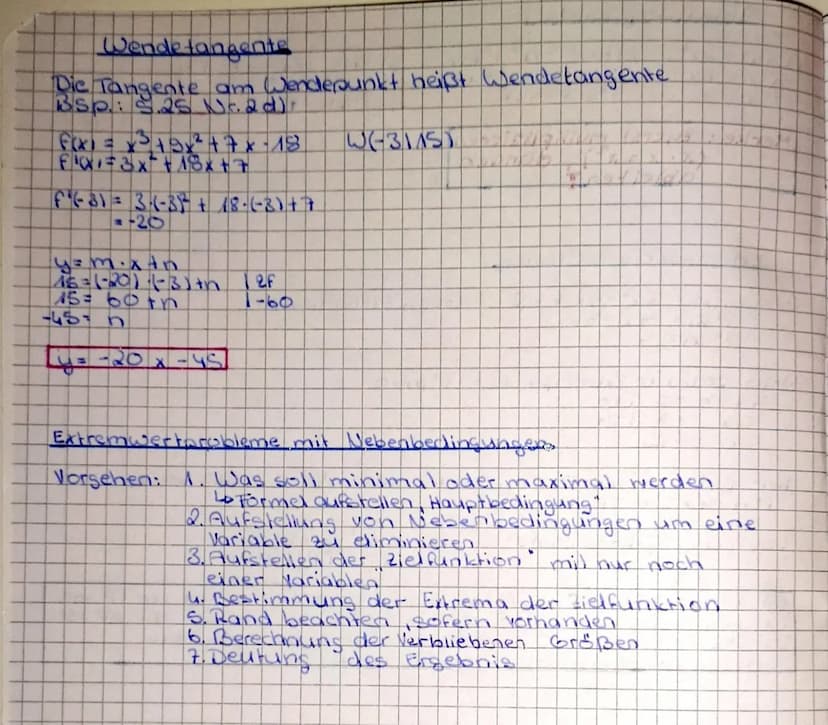 Wendetangente
Die Tangente am Wendepunkt heißt Wendetangente
Bsp.: S.25 Nr. 2d)
f(x) = x³+9x²+7x-18 W(-3|15)
f'(x)=3x²+18x+7
f'(-3) = 3·(-3)² + 18·(-3)+7
= -20
y = m·x+n
15=(-20)·(-3)+n |zf
15= 60+n |-60
-45= n
y = -20x -45
Extremwertprobleme mit Nebenbedingungen
Vorgehen: 1. Was soll minimal oder maximal werden
↳ Formel aufstellen „Hauptbedingung"
2. Aufstellung von Nebenbedingungen um eine
Variable zu eliminieren
3. Aufstellen der „Zielfunktion" mit nur noch
einer Variablen
4. Bestimmung der Extrema der Zielfunktion
5. Rand beachten, sofern vorhanden
6. Berechnung der verbliebenen Größen
7. Deutung des Ergebnis